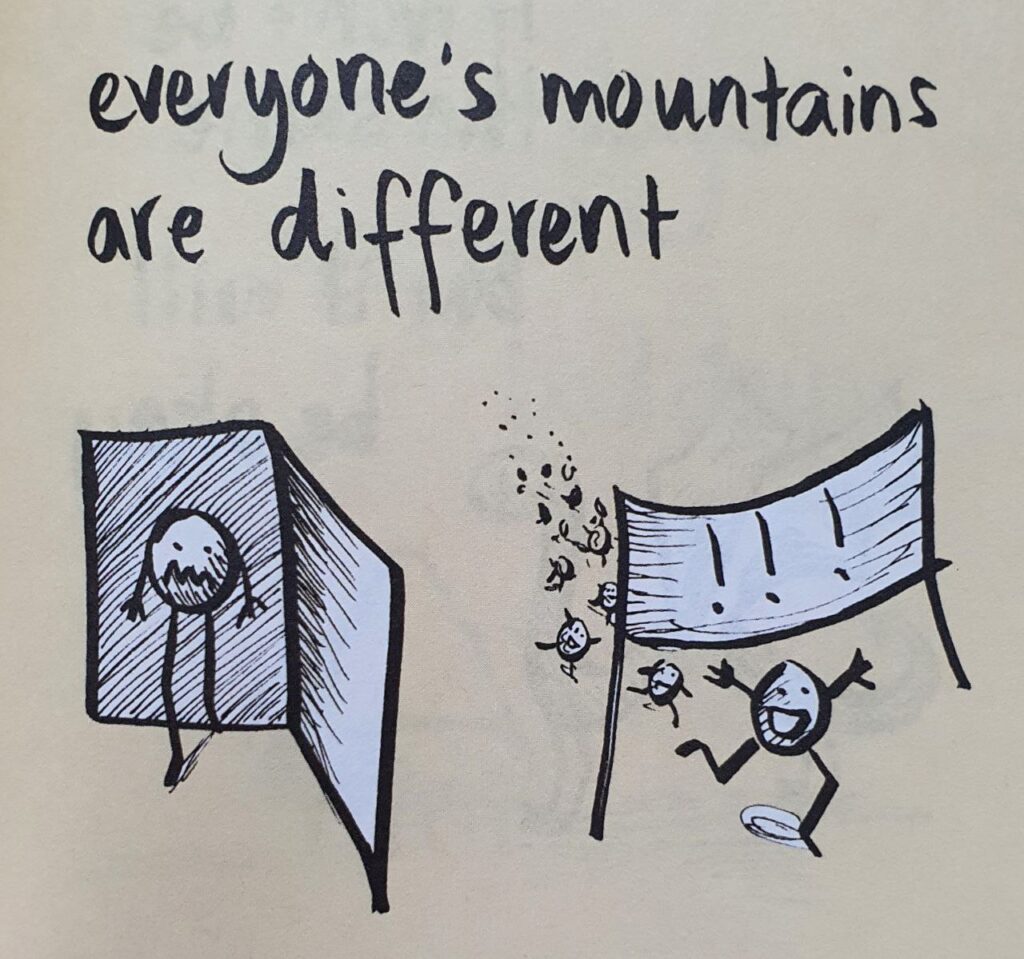 everyone's mountains
are different
! ! !